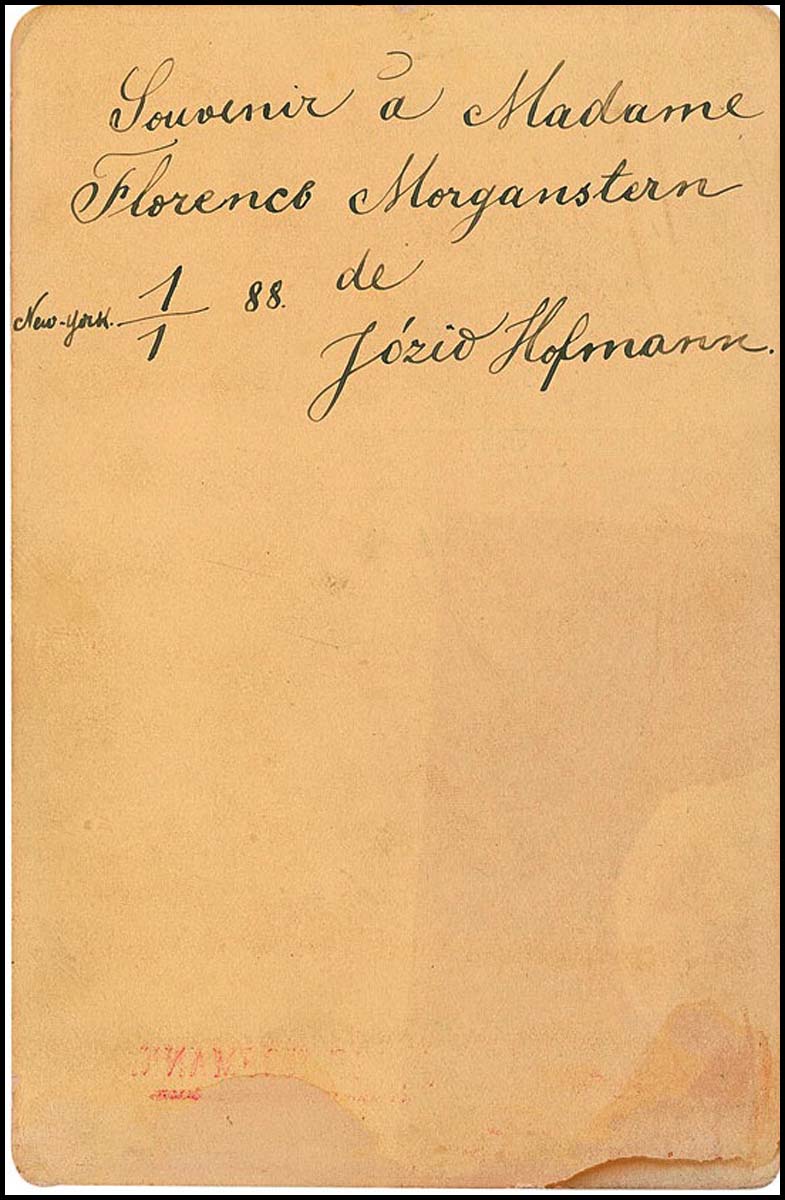 Souvenir à Madame
Florence Morganstern
de
New-York. 1/1 88.
Józio Hofmann.